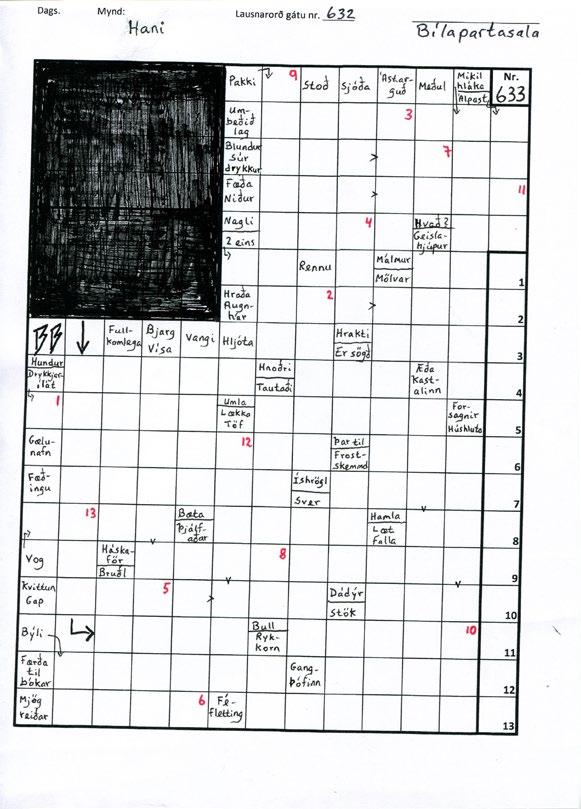 Dags. Mynd: Lausnarorð gátu nr. 632
Hani Bílapartasala
Pakki 9 Stoð Sjóða Ástar-
guð Meðul Mikil
hláka
Alpast. Nr.
633
Um-
beðið
lag 3
Blundur
Súr
drykkur > 7
Fæða
Niður > 11
Nagli 4 Hvað?
2 eins Geisla-
hjúpur
Rennu Málmur
Mölvar 1
Hraða
Augn-
hár 2 > 2
BB Full-
komlega Bjarg
Vísa Vangi Hljóta Hrakti
Er sögð 3
Hundur
Drykkjar-
ílát Hnoðri
Tautaði Æða
Kast-
alinn 4
1 Umla
Lækka
Töf For-
sagnir
Húshluta 5
Gælu-
nafn 12 Þar til
Frost-
skemmd 6
Fæð-
ingu Íshrögl
Sver 7
13 Bæta
Þjálf-
aðar Hamla
Læt
falla 8
Vog Háska-
för
Bruðl 8 9
Kvittun
Gap 5 > Dádýr
Stök 10
Býli Bull
Ryk-
korn 10 11
Færða
til
bókar Gang-
þófinn 12
Mjög
reiðar 6 Fé-
fletting 13